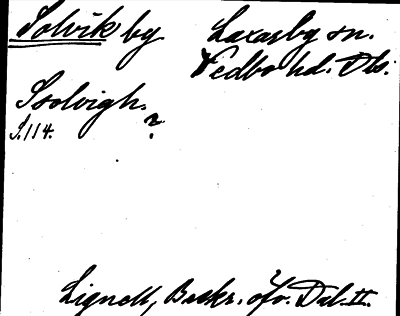 Solvik by Laxarby sn.
Vedbo hd. Dls.
Isolvigh.
S. 114. ?
Lignell, Beskr. öfv. Dal. II.